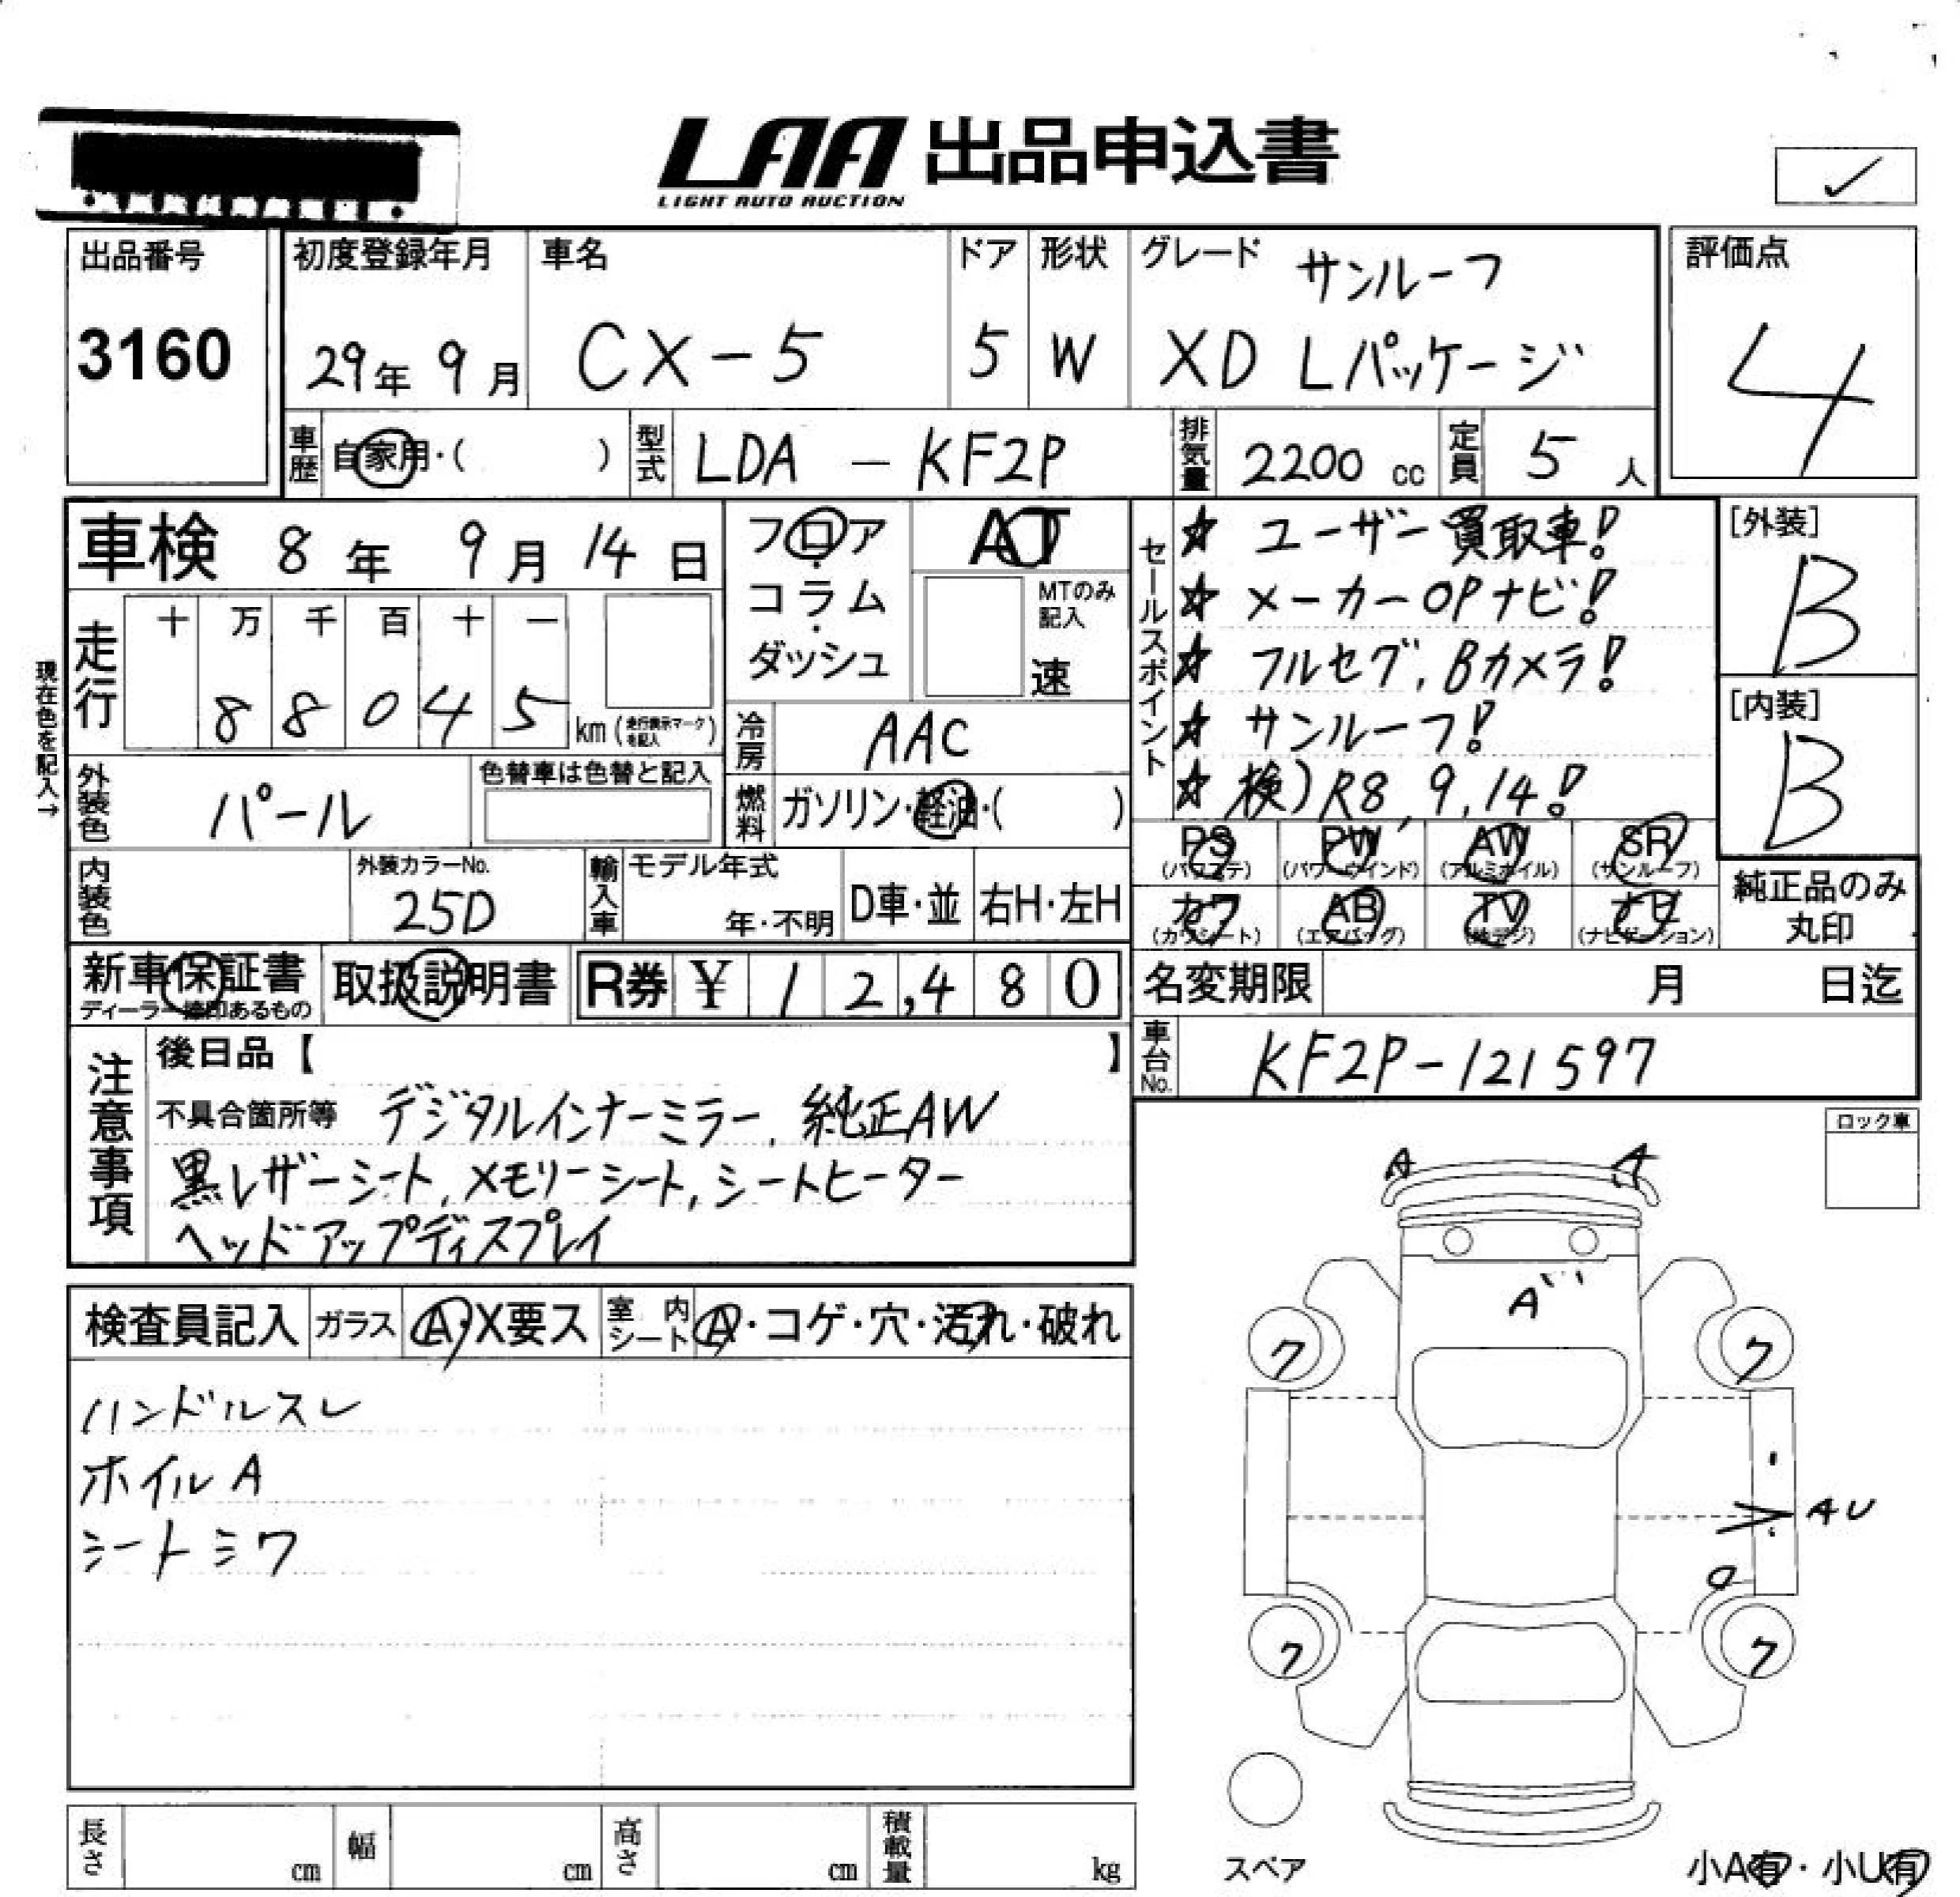 LAA 出品申込書
LIGHT AUTO AUCTION
✓
出品番号
3160
初度登録年月
29年 9月
車名
CX-5
ドア
5
形状
W
グレード サンルーフ
XD Lパッケージ
評価点
4
車歴 自家用・( )
型式 LDA - KF2P
排気量 2200 cc
定員 5 人
車検 8年 9月 14日
フロア
コラム
ダッシュ
AT
MTのみ記入
速
走行
十 万 千 百 十 一
8 8 0 4 5 km (走行表示マークを記入)
現在色を記入→
冷房 AAC
外装色 パール
色替車は色替と記入
燃料 ガソリン・軽油・( )
内装色
外装カラーNo.
25D
輸入車
モデル年式
年・不明
D車・並
右H・左H
セールスポイント
☆ ユーザー買取車!
☆ メーカーOPナビ!
☆ フルセグ, Bカメラ!
☆ サンルーフ!
☆ 検) R8, 9, 14!
[外装]
B
[内装]
B
PS (パワステ)
PW (パワーウインド)
AW (アルミホイル)
SR (サンルーフ)
カワ (カワシート)
AB (エアバッグ)
TV (地デジ)
ナビ (ナビゲーション)
純正品のみ
丸印
新車保証書
ディーラー捺印あるもの
取扱説明書
R券 ¥ 12,480
名変期限 月 日迄
車台No. KF2P-121597
注意事項
後日品【 】
不具合箇所等 デジタルインナーミラー, 純正AW
黒レザーシート, メモリーシート, シートヒーター
ヘッドアップディスプレイ
ロック車
検査員記入
ガラス A・X要ス
室内シート A・コゲ・穴・汚れ・破れ
ハンドルスレ
ホイルA
シートシワ
A A
A
ク ク
AU
ク ク
スペア
長さ cm
幅 cm
高さ cm
積載量 kg
小A有・小U有